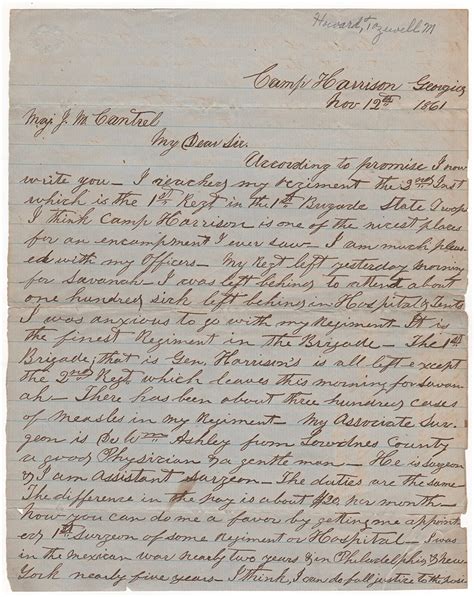 Howard, Tazwell M
Camp Harrison Georgia
Nov 12th 1861
Maj J. M. Cantrel
My Dear Sir.
According to promise I now
write you — I reached my regiment the 3rd Inst
which is the 1st Regt in the 1st Brigade State Troops
I think Camp Harrison is one of the nicest places
for an encampment I ever saw — I am much pleas
ed with my Officers — My Regt left yesterday morning
for Savanah — I was left behind to attend about
one hundred sick left behind in Hospital & Tents
I was anxious to go with my Regiment — It is
the finest Regiment in the Brigade — The 1st
Brigade, that is Gen. Harrison's is all left except
the 2nd Regt which leaves this morning for Savan
ah — There has been about three hundred cases
of Measles in my Regiment — My Associate Sur-
geon is Dr Wm Ashley from Lowdnes County
a good Physician & a gentleman — He is surgeon
& I am Assistant Surgeon — The duties are the same
The difference in the pay is about $20 per month —
Now you can do me a favor by getting me appoint
ed 1st Surgeon of some Regiment or Hospital — I was
in the mexican war nearly two years & in Philadelphia & New
York nearly five years — I think, I can do full justice to the